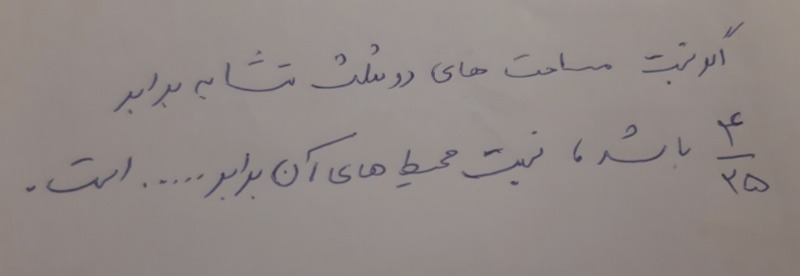 اگر نسبت مساحت های دو مثلث متشابه برابر
۴/۲۵ باشد، نسبت محیط های آن برابر ..... است.